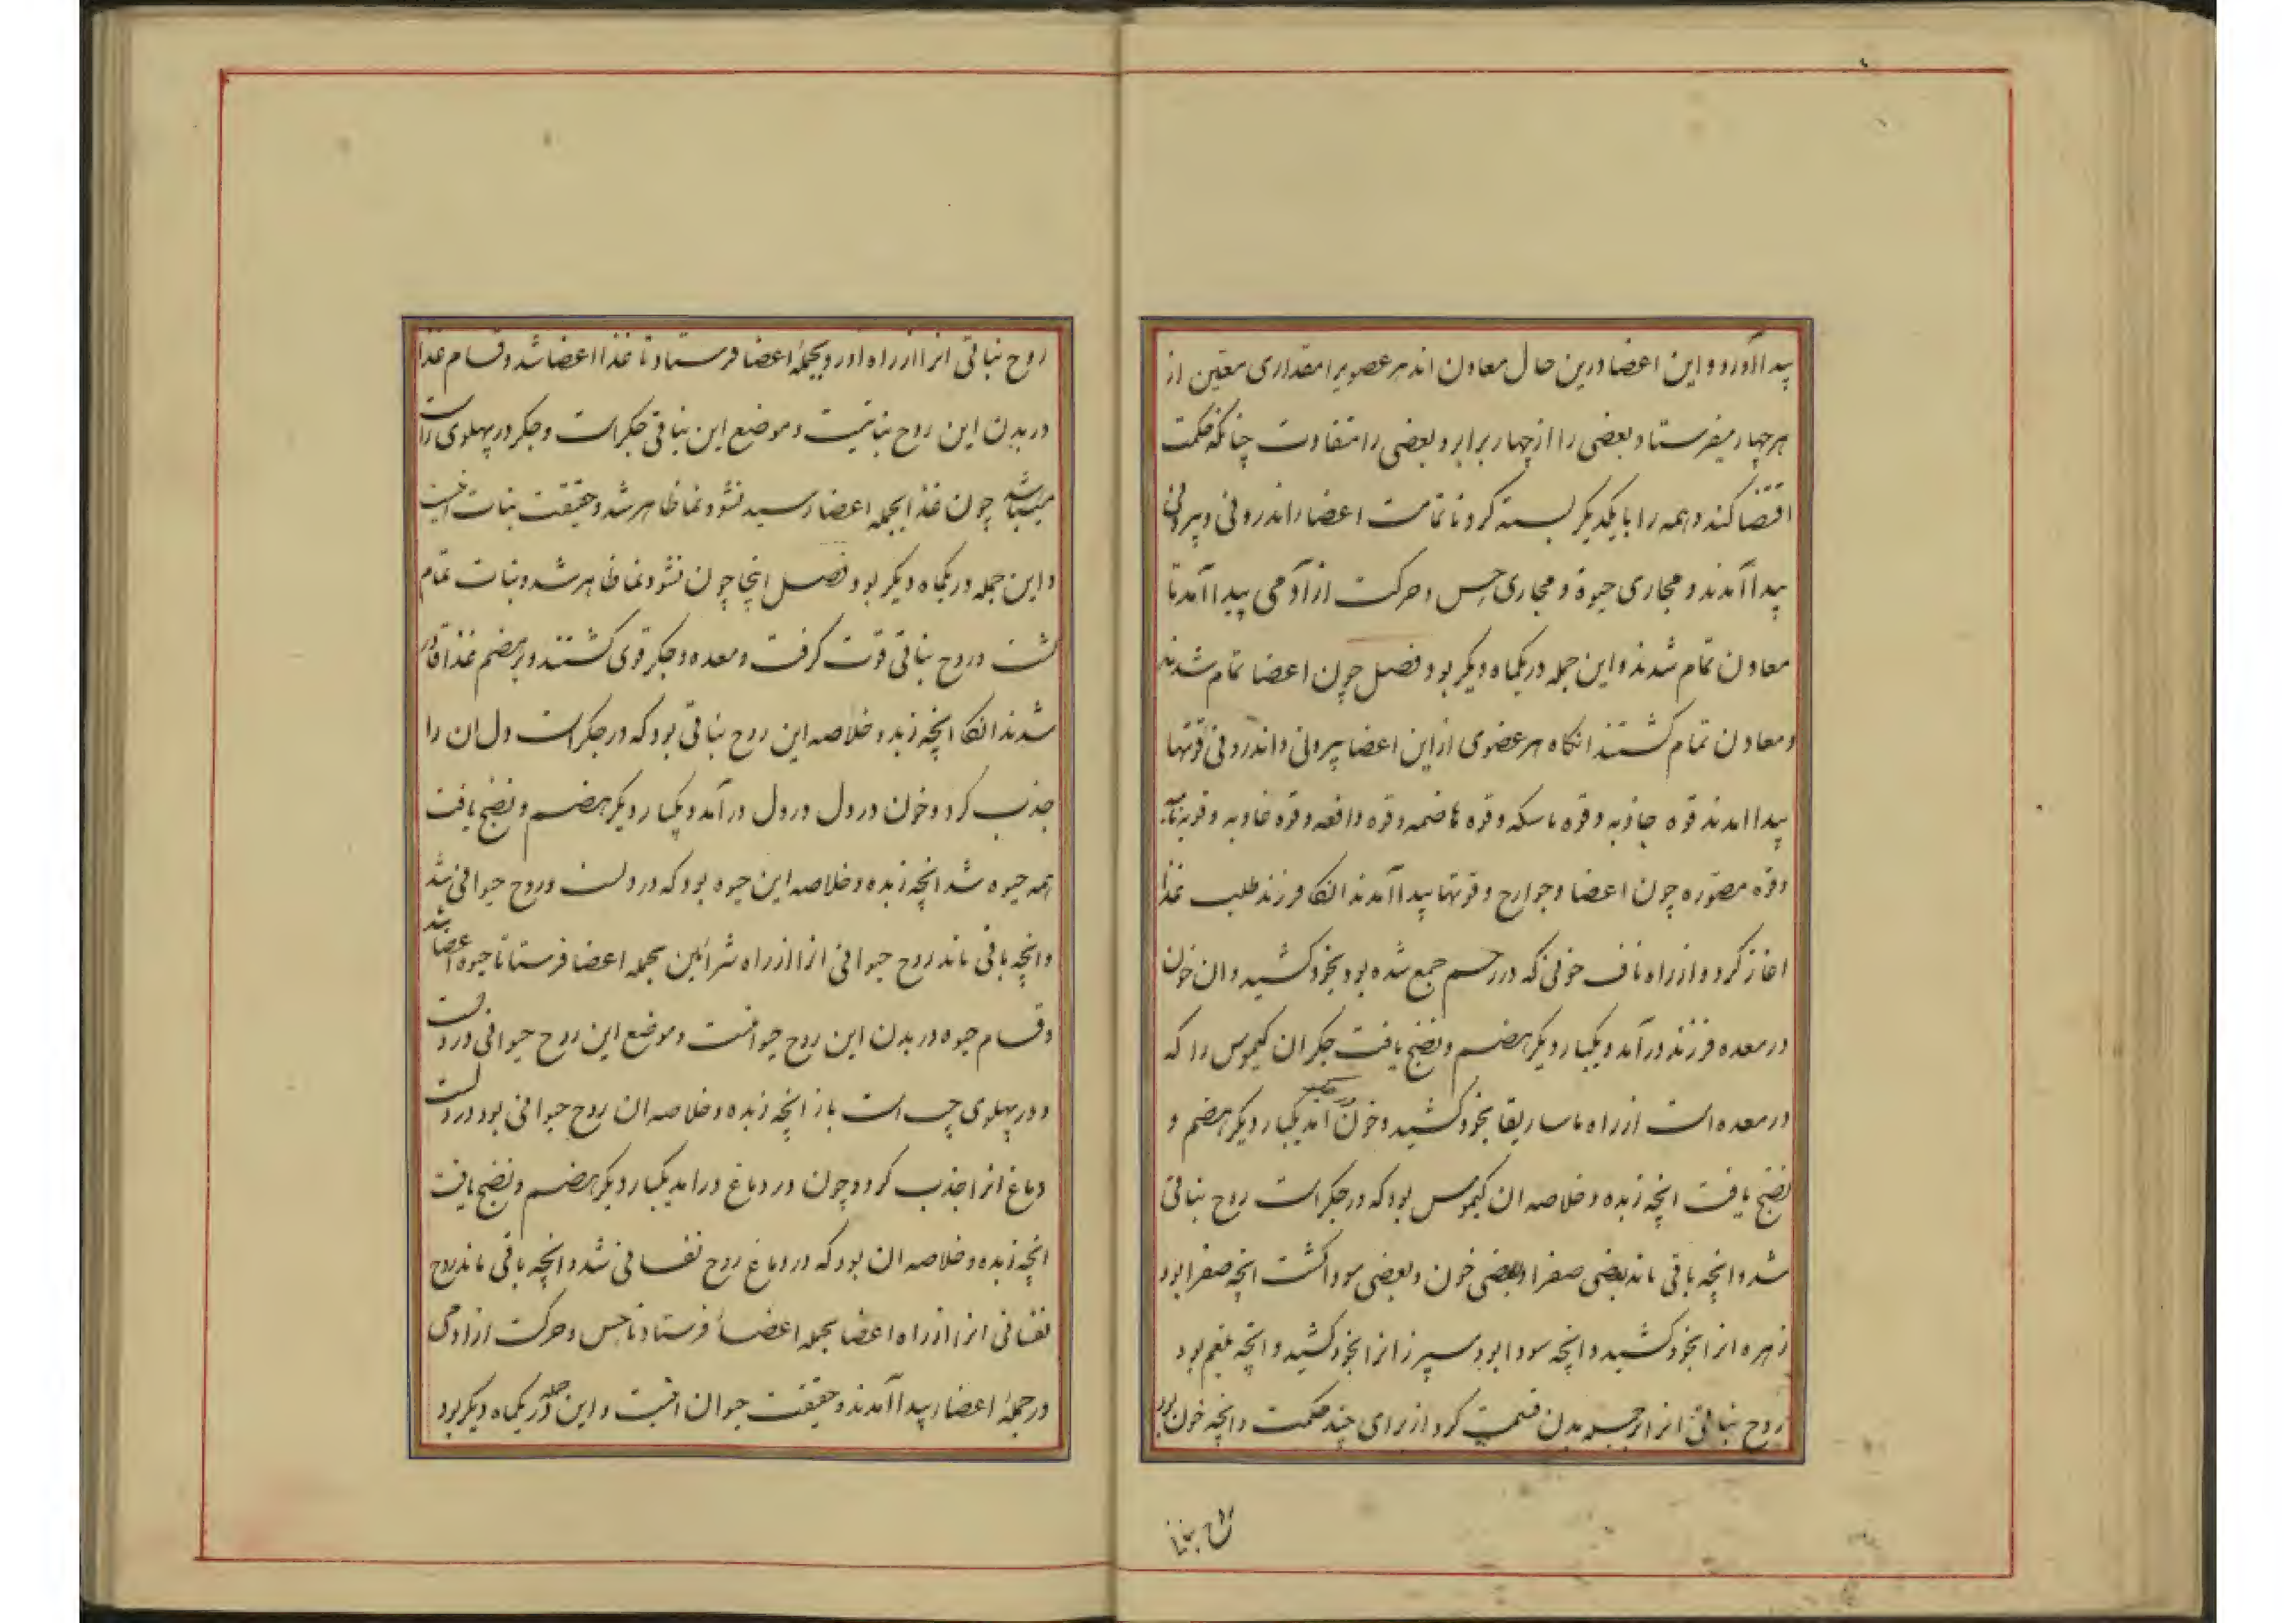 پیدا آورد و این اعضا درین حال معادن اند هر عضویرا مقداری معین از
هر چهار میفرستاد بعضی را از چهار برابر و بعضی را متفاوت چنانکه حکمت
اقتضا کند و همه را با یکدیکر بسته کرد تا تمامت اعضا را اندرونی و بیرونی
پیدا آمدند و مجاری حیوة و مجاری حس و حرکت از آدمی پیدا آمد تا
معادن تمام شدند و این جمله در یکماه دیکر بود فصل چون اعضا تمام شدند
و معادن تمام کشتند انکاه هر عضوی از این اعضا بیرونی و اندرونی قوتها
پیدا امدند قوه جاذبه و قوه ماسکه و قوه هاضمه و قوه دافعه و قوه غاذیه و قوه نامیه
و قوه مصوره چون اعضا و جوارح و قوتها پیدا آمدند انکا فرزند طلب غذا
اغاز کرد و از راه ناف خونی که در رحم جمع شده بود بخود کشید و ان خون
در معده فرزند در آمد و یکبار دیکر هضم و نضج یافت جکر ان کیموس را که
در معده است از راه ماساریقا بخود کشید و خون در جکر آمد یکبار دیکر هضم و
نضج یافت انچه زبده و خلاصه ان کیموس بود که در جکر است روح نباتی
شد و انچه باقی ماند بعضی صفرا و بعضی خون و بعضی سودا کشت انچه صفرا بود
زهره انرا بخود کشید و انچه سودا بود سپرز انرا بخود کشید و انچه بلغم بود
روح نباتی انرا بر جمله بدن قسمت کرد از برای چند حکمت و انچه خون بود
روح نبا
روح نباتی انرا از راه اورد بجملهٔ اعضا فرستاد تا غذا اعضا شد و قسام غذا
در بدن این روح نباتیست و موضع این نباتی جکر است و جکر در پهلوی راست
میباشد چون غذا بجمله اعضا رسید نشو و نما ظاهر شد و حقیقت نبات اینست
و این جمله در یکماه دیکر بود فصل اینجا چون نشو و نما ظاهر شد و نبات تمام
کشت و روح نباتی قوت کرفت و معده و جکر قوی کشتند و بر هضم غذا قادر
شدند انکا انچه زبده و خلاصه این روح نباتی بود که در جکر است دل ان را
جذب کرد و خون در دل در دل در آمد و یکبار دیکر هضم و نضج یافت
همه حیوه شد انچه زبده و خلاصه این حیوه بود که در دلست و روح حیوانی شد
و انچه باقی ماند روح حیوانی انرا از راه شرائین بجمله اعضا فرستا تا حیوه اعضا شد
و قسام حیوه در بدن این روح حیوانیست و موضع این روح حیوانی در دلست
و در پهلوی چپ است باز انچه زبده و خلاصه ان روح حیوانی بود در دلست
دماغ انرا جذب کرد و چون در دماغ در امد یکبار دیکر هضم و نضج یافت
انچه زبده و خلاصه ان بود که در دماغ روح نفسانی شد و انچه باقی ماند روح
نفسانی انرا از راه اعضا بجمله اعضا فرستاد تا حس و حرکت از ادمی
در جملهٔ اعضا پیدا آمدند و حقیقت حیوان اینست و این جمله در یکماه دیکر بود